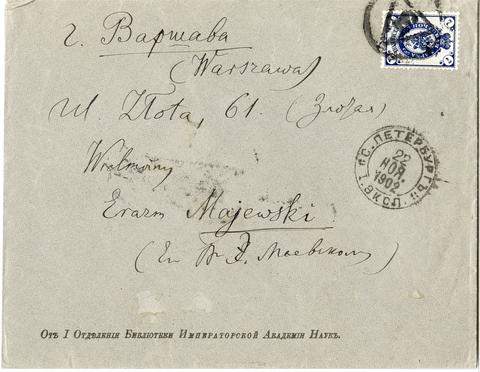 г. Варшава
(Warszawa)
ul. Złota, 61. (Злотая)
Wielmożny
Erazm Majewski
(Ег. В. Э. Маевском)
С. ПЕТЕРБУРГЪ
22
НОЯ.
1902
1 ЭКСП.
Отъ I Отдѣленія Библіотеки Императорской Академіи Наукъ.